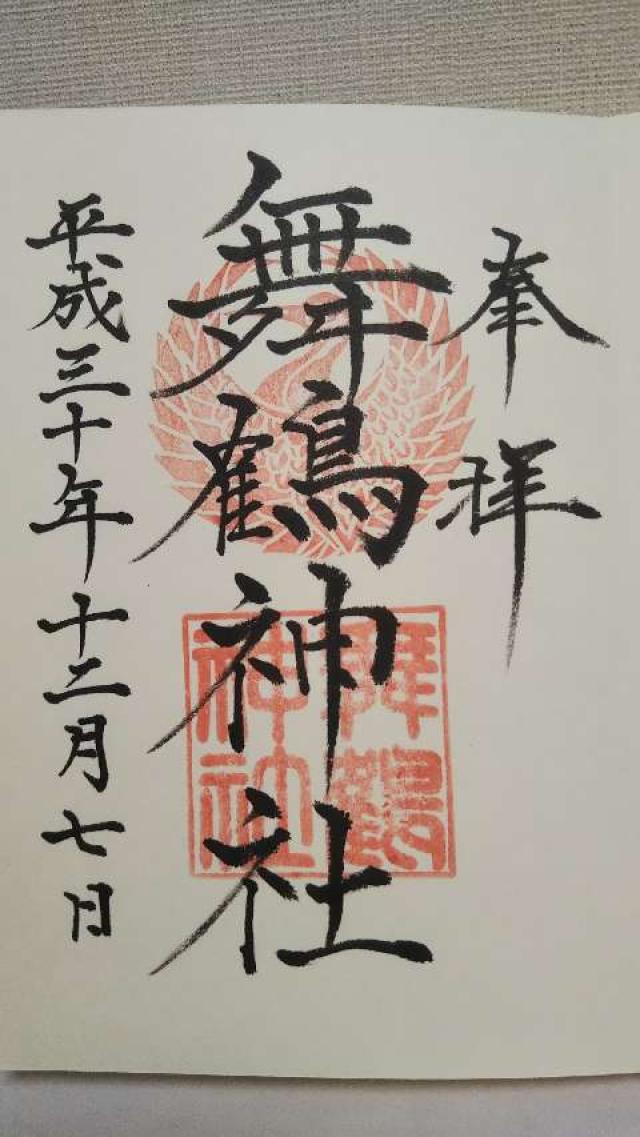 奉拝
舞鶴神社
舞鶴
神社
平成三十年十二月七日